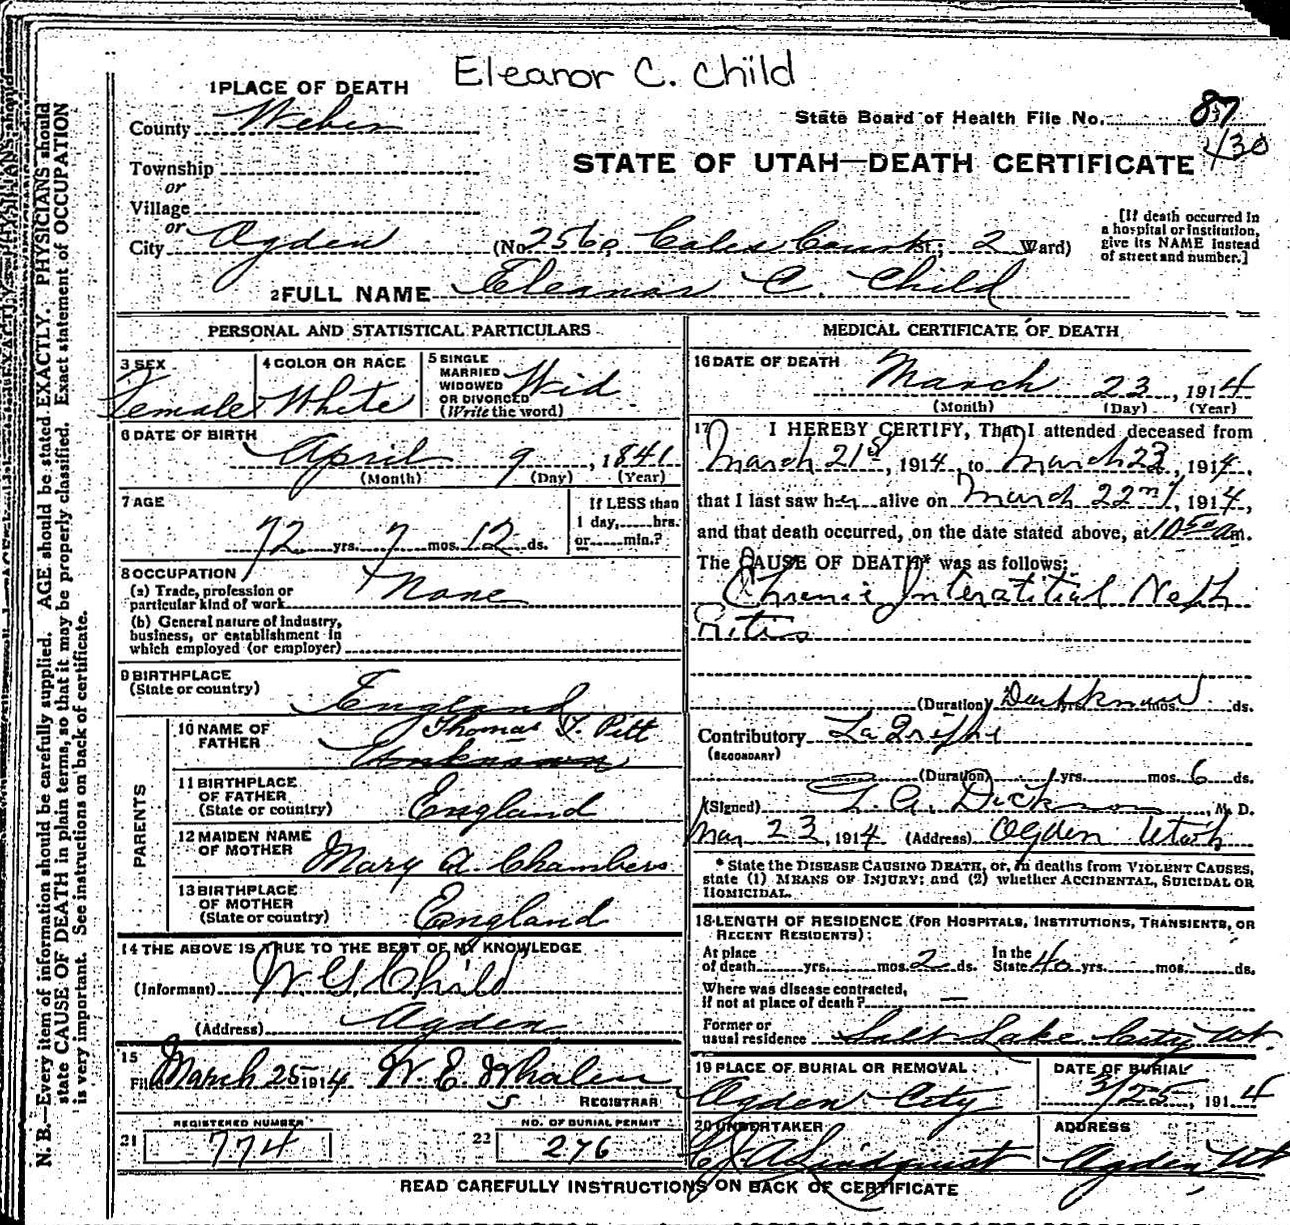 Eleanor C. Child
1 PLACE OF DEATH
County Weber
State Board of Health File No. 87
430
STATE OF UTAH—DEATH CERTIFICATE
Township
or
Village
or
City Ogden (No. 2560 Coles Court St.; 2 Ward)
[If death occurred in
a hospital or institution,
give its NAME instead
of street and number.]
2 FULL NAME Eleanor C. Child
PERSONAL AND STATISTICAL PARTICULARS
3 SEX
Female
4 COLOR OR RACE
White
5 SINGLE
MARRIED
WIDOWED
OR DIVORCED
(Write the word)
Wid
6 DATE OF BIRTH
April 9, 1841
(Month) (Day) (Year)
7 AGE
72 yrs. 7 mos. 12 ds.
If LESS than
1 day, hrs.
or min.?
8 OCCUPATION
(a) Trade, profession or
particular kind of work None
(b) General nature of industry,
business, or establishment in
which employed (or employer)
9 BIRTHPLACE
(State or country) England
PARENTS
10 NAME OF
FATHER
Thomas T. Pitt
Unknown
11 BIRTHPLACE
OF FATHER
(State or country) England
12 MAIDEN NAME
OF MOTHER Mary A Chambers
13 BIRTHPLACE
OF MOTHER
(State or country) England
14 THE ABOVE IS TRUE TO THE BEST OF MY KNOWLEDGE
(Informant) W G Child
(Address) Ogden
15
Filed March 25 1914 W. E. Whalen
REGISTRAR
REGISTERED NUMBER
21 774
NO. OF BURIAL PERMIT
22 276
MEDICAL CERTIFICATE OF DEATH
16 DATE OF DEATH
March 23, 1914
(Month) (Day) (Year)
17 I HEREBY CERTIFY, That I attended deceased from
March 21st, 1914, to March 23, 1914,
that I last saw her alive on March 22nd, 1914,
and that death occurred, on the date stated above, at 10 50 a m.
The CAUSE OF DEATH* was as follows:
Chronic Interstitial Neph
ritis
(Duration) yrs. mos. ds.
Contributory La Grippe
(SECONDARY)
(Duration) yrs. mos. 6 ds.
(Signed) M. D.
Mar 23, 1914 (Address) Ogden Utah
* State the DISEASE CAUSING DEATH, or, in deaths from VIOLENT CAUSES,
state (1) MEANS OF INJURY; and (2) whether ACCIDENTAL, SUICIDAL OR
HOMICIDAL.
18 LENGTH OF RESIDENCE (FOR HOSPITALS, INSTITUTIONS, TRANSIENTS, OR
RECENT RESIDENTS):
At place
of death yrs. mos. 2 ds. In the
State 40 yrs. mos. ds.
Where was disease contracted,
if not at place of death? —
Former or
usual residence Salt Lake City Ut.
19 PLACE OF BURIAL OR REMOVAL
Ogden City
DATE OF BURIAL
3/25, 1914
20 UNDERTAKER
C J A Lindquist
ADDRESS
Ogden, Ut
READ CAREFULLY INSTRUCTIONS ON BACK OF CERTIFICATE
N. B.—Every item of information should be carefully supplied. AGE should be stated EXACTLY. PHYSICIANS should
state CAUSE OF DEATH in plain terms, so that it may be properly classified. Exact statement of OCCUPATION
is very important. See instructions on back of certificate.